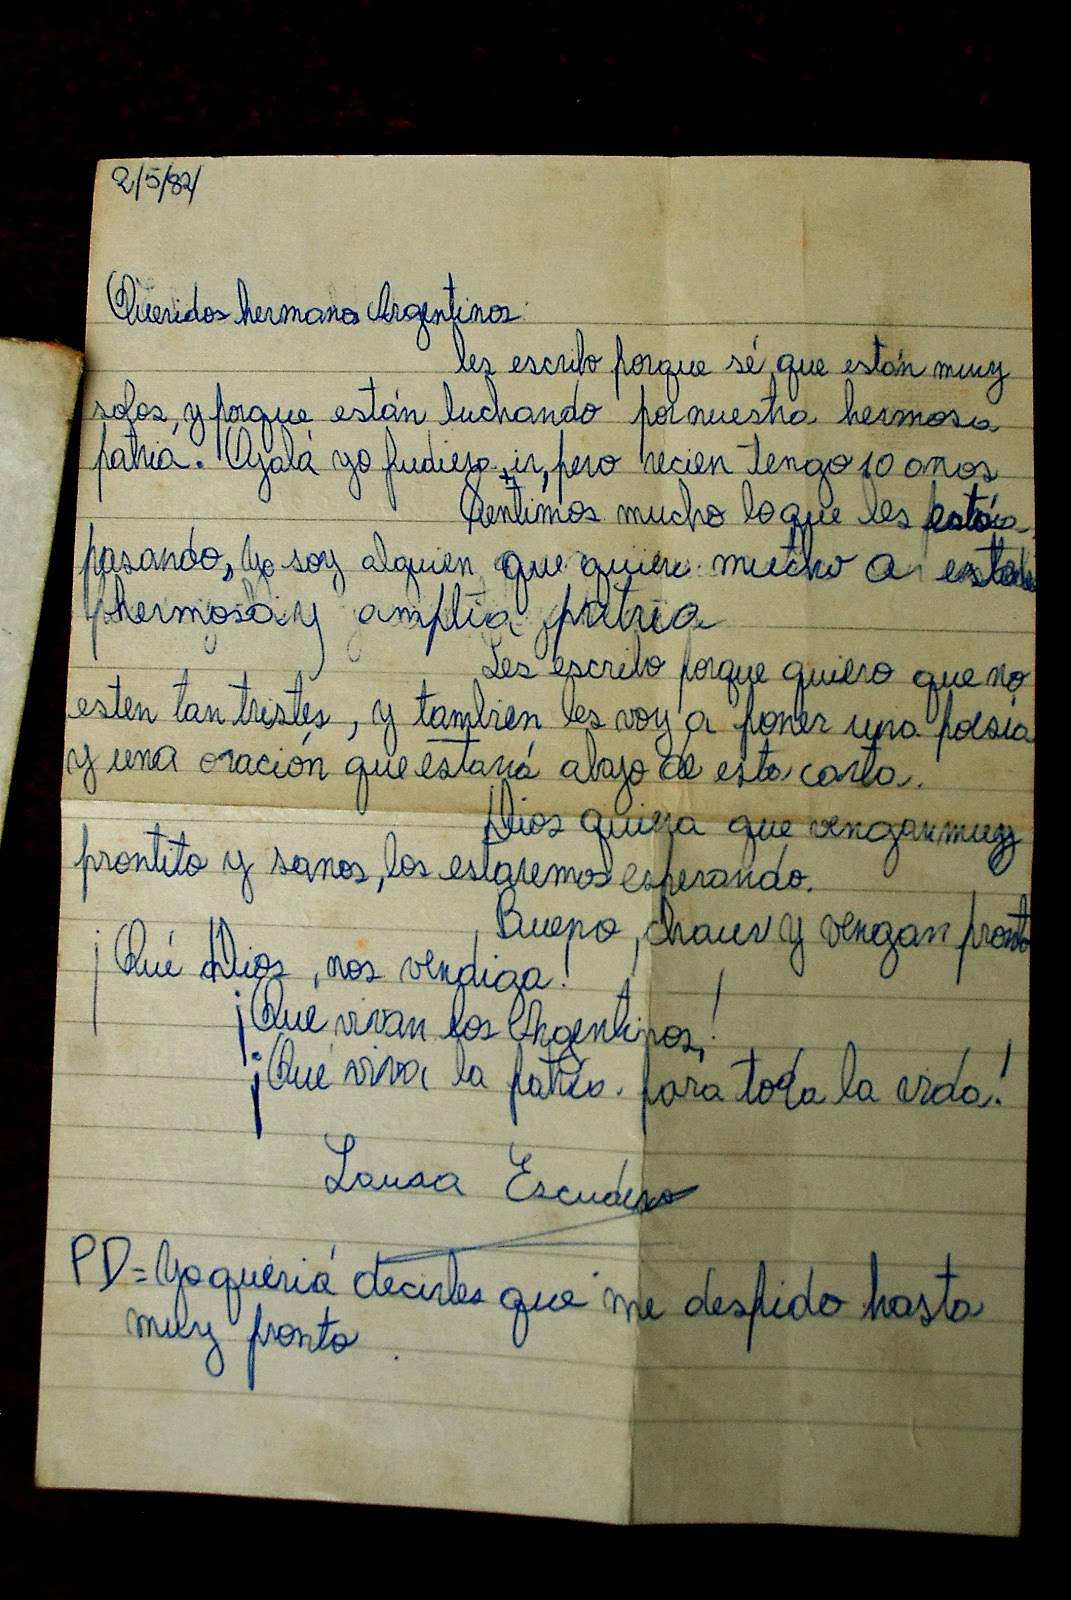 2/5/82/
Queridos hermanos Argentinos:
les escribo porque sé que están muy
solos, y porque están luchando por nuestra hermosa
patria. Ojalá yo pudiera ir, pero recien tengo 10 años
Sentimos mucho lo que les está
pasando, yo soy alguien que quiere mucho a esta
hermosa y amplia patria
Les escribo porque quiero que no
esten tan tristes, y tambien les voy a poner una poesía
y una oración que estará abajo de esta carta.
Dios quiera que vengan muy
prontito y sanos, los estaremos esperando.
Bueno, chau y vengan pronto
¡Qué Dios, nos vendiga!
¡Qué vivan los Argentinos,!
¡Qué viva la patria para toda la vida!
Laura Escudero
PD= Yo quería decirles que me despido hasta
muy pronto.